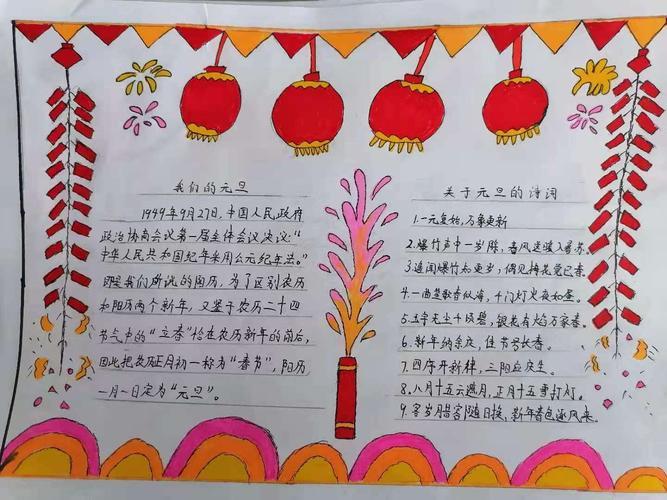 我们的元旦
1949年9月27日,中国人民政府
政治协商会议第一届全体会议决议:“
中华人民共和国纪年采用公元纪年法。”
即是我们所说的阳历,为了区别农历
和阳历两个新年,又鉴于农历二十四
节气中的“立春”恰在农历新年的前后,
因此把农历正月初一称为“春节”,阳历
一月一日定为“元旦”。
关于元旦的诗词
1.一元复始,万象更新
2.爆竹声中一岁除,春风送暖入屠苏。
3.遥闻爆竹知更岁,偶见梅花觉已春。
4.一曲笙歌春似海,千门灯火夜如昼。
5.五字先生十级碧,银花有焰万家春。
6.新年纳余庆,佳节号长春。
7.四序开新律,三阳应庆生。
8.八月十五云遮月,正月十五雪打灯。
9.寒岁月皆窗随日换,新年春色逐风来。